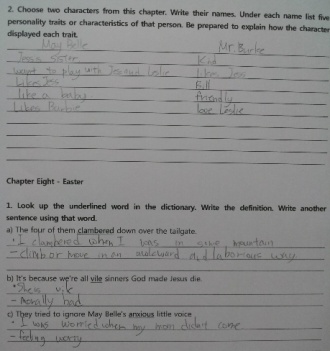 2. Choose two characters from this chapter. Write their names. Under each name list five
personality traits or characteristics of that person. Be prepared to explain how the character
displayed each trait.
May Belle Mr. Burke
Jess sister Kid
want to play with Jess and Leslie likes Jess
Likes Jess Bill
like a baby friendly
Likes Barbie love Leslie
Chapter Eight - Easter
1. Look up the underlined word in the dictionary. Write the definition. Write another
sentence using that word.
a) The four of them clambered down over the tailgate.
• I clambered when I was in some mountain
- climb or move in an awkward and laborious way.
b) It's because we're all vile sinners God made Jesus die.
• She is vile
- morally bad
c) They tried to ignore May Belle's anxious little voice
• I was worried when my mom didn't come
- feeling worry